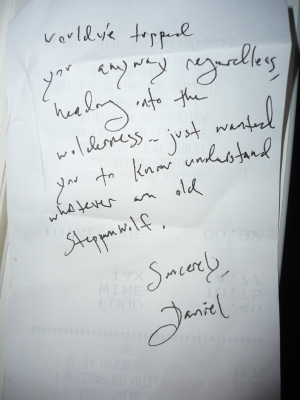 would've tipped
you anyway regardless,
heading into the
wilderness - just wanted
you to know understand
whatever an old
Steppenwolf.
Sincerely,
Daniel
TAX
WINE
FOOD